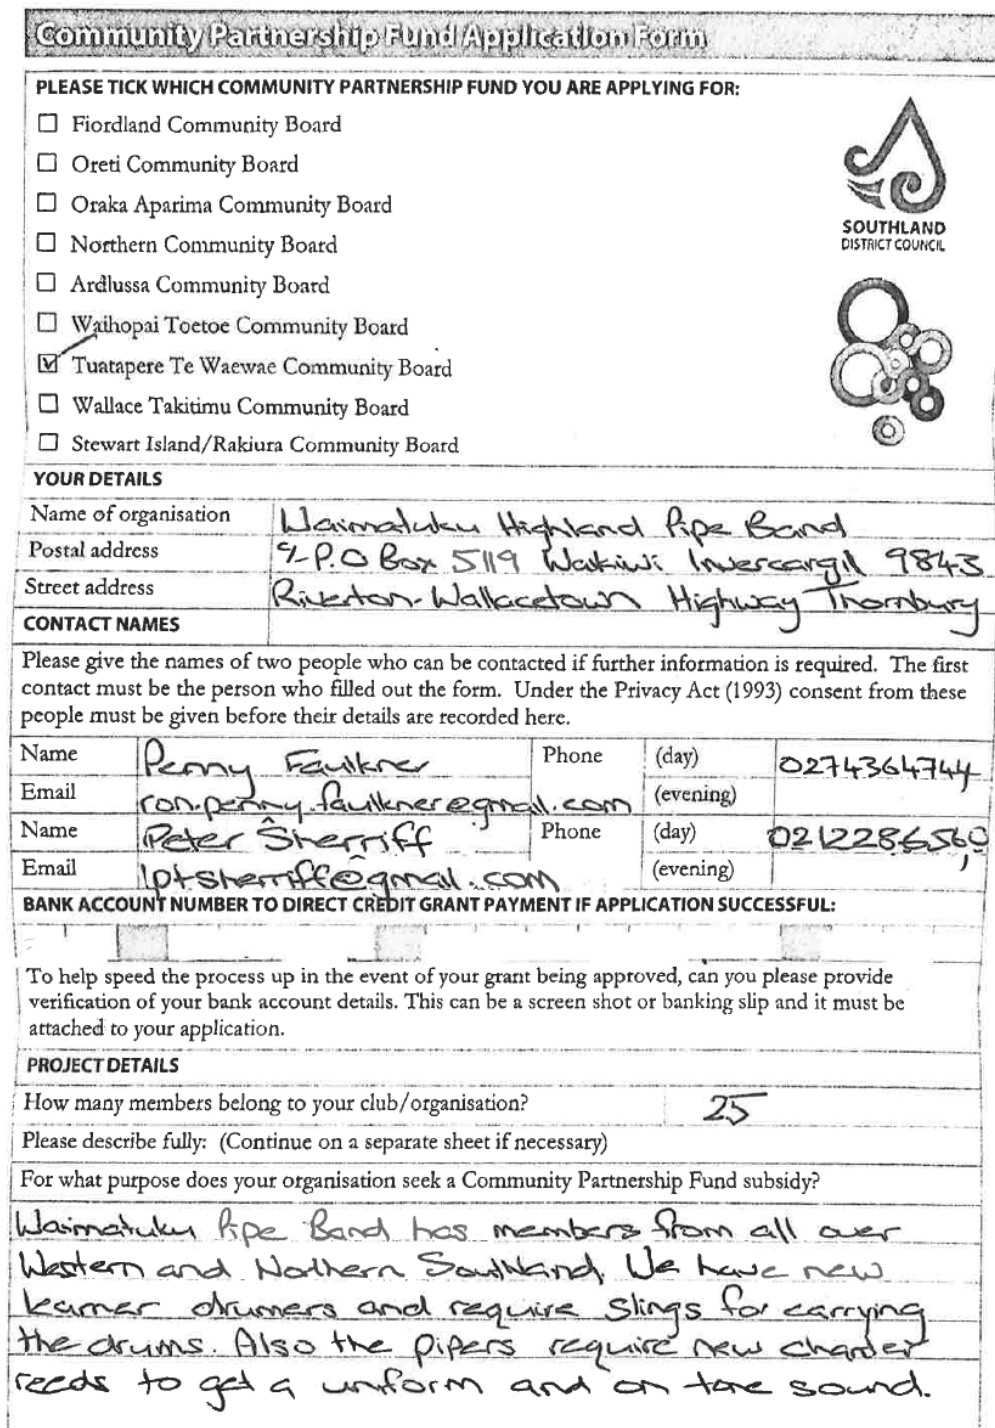 Community Partnership Fund Application Form
PLEASE TICK WHICH COMMUNITY PARTNERSHIP FUND YOU ARE APPLYING FOR:
☐ Fiordland Community Board
☐ Oreti Community Board
☐ Oraka Aparima Community Board
☐ Northern Community Board
☐ Ardlussa Community Board
☐ Waihopai Toetoe Community Board
☑ Tuatapere Te Waewae Community Board
☐ Wallace Takitimu Community Board
☐ Stewart Island/Rakiura Community Board
SOUTHLAND
DISTRICT COUNCIL
YOUR DETAILS
Name of organisation Waimatuku Highland Pipe Band
Postal address C/- P.O Box 5119 Wakiwi Invercargil 9843
Street address Riverton-Wallacetown Highway Thornbury
CONTACT NAMES
Please give the names of two people who can be contacted if further information is required. The first
contact must be the person who filled out the form. Under the Privacy Act (1993) consent from these
people must be given before their details are recorded here.
Name Penny Faulkner Phone (day) 0274364744
Email ron.penny.faulkner@gmail.com (evening)
Name Peter Sherriff Phone (day) 0212286560
Email lptsherriff@gmail.com (evening)
BANK ACCOUNT NUMBER TO DIRECT CREDIT GRANT PAYMENT IF APPLICATION SUCCESSFUL:
To help speed the process up in the event of your grant being approved, can you please provide
verification of your bank account details. This can be a screen shot or banking slip and it must be
attached to your application.
PROJECT DETAILS
How many members belong to your club/organisation? 25
Please describe fully: (Continue on a separate sheet if necessary)
For what purpose does your organisation seek a Community Partnership Fund subsidy?
Waimatuku Pipe Band has members from all over
Western and Northern Southland. We have new
learner drumers and require slings for carrying
the drums. Also the pipers require new chanter
reeds to get a uniform and on tone sound.